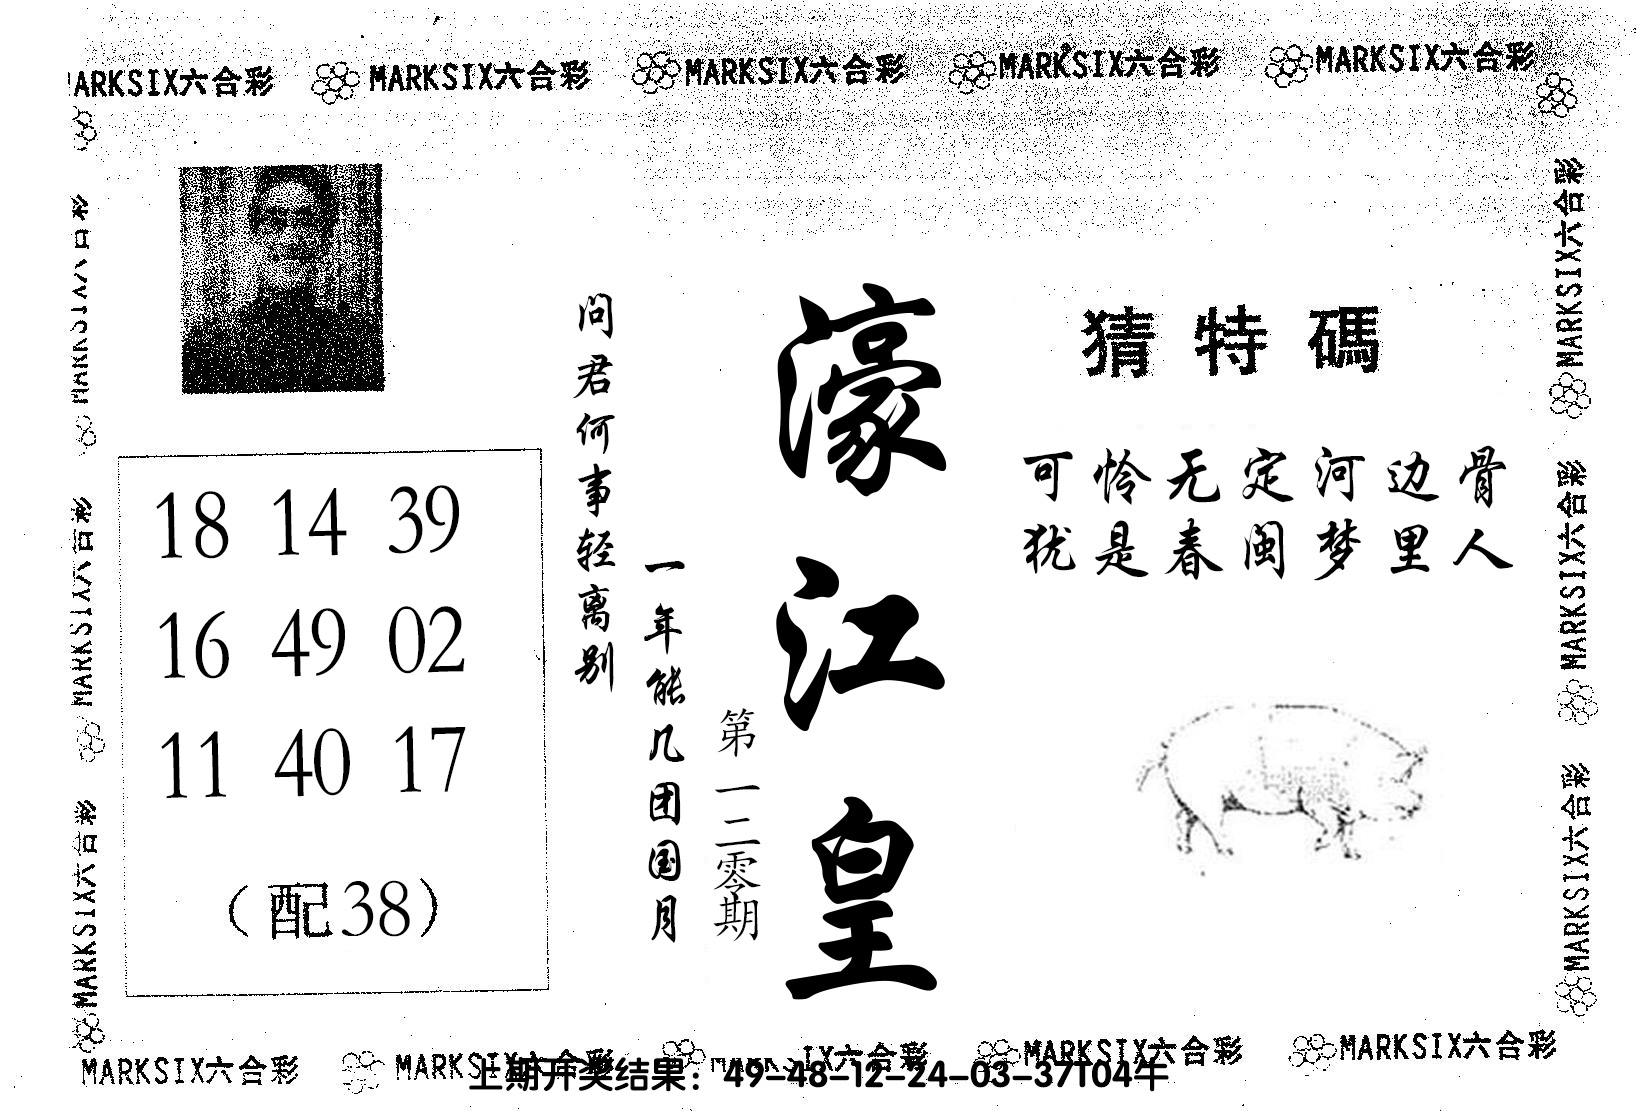 MARKSIX六合彩 MARKSIX六合彩 MARKSIX六合彩 MARKSIX六合彩
MARKSIX六合彩
MARKSIX六合彩
MARKSIX六合彩
MARKSIX六合彩
MARKSIX六合彩
MARKSIX六合彩
猜特碼
可怜无定河边骨
犹是春闺梦里人
濠江皇
第一二零期
问君何事轻离别
一年能几团国月
18 14 39
16 49 02
11 40 17
(配38)
MARKSIX六合彩 MARKSIX六合彩 MARKSIX六合彩 MARKSIX六合彩
上期开奖结果：49-48-12-24-03-37T04牛